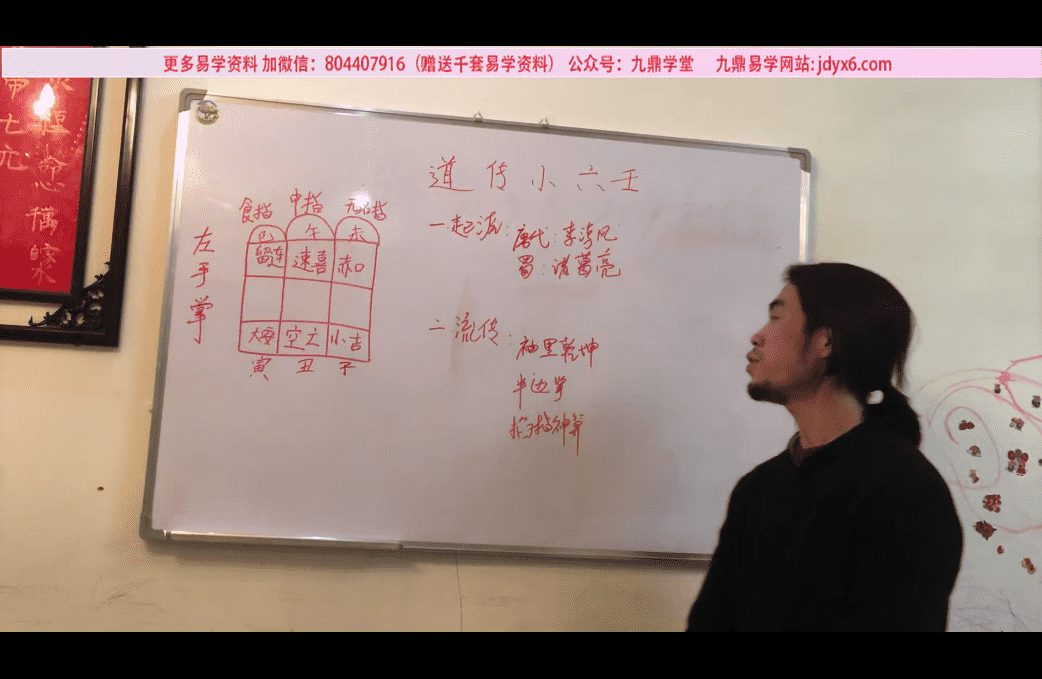 更多易学资料 加微信：804407916（赠送千套易学资料） 公众号：九鼎学堂 九鼎易学网站:jdyx6.com
道传小六壬
食指 中指 无名指
巳 午 未
留连 速喜 赤口
大安 空亡 小吉
寅 丑 子
左手掌
一起源：唐代：李淳风
蜀：诸葛亮
二流传：袖里乾坤
神算